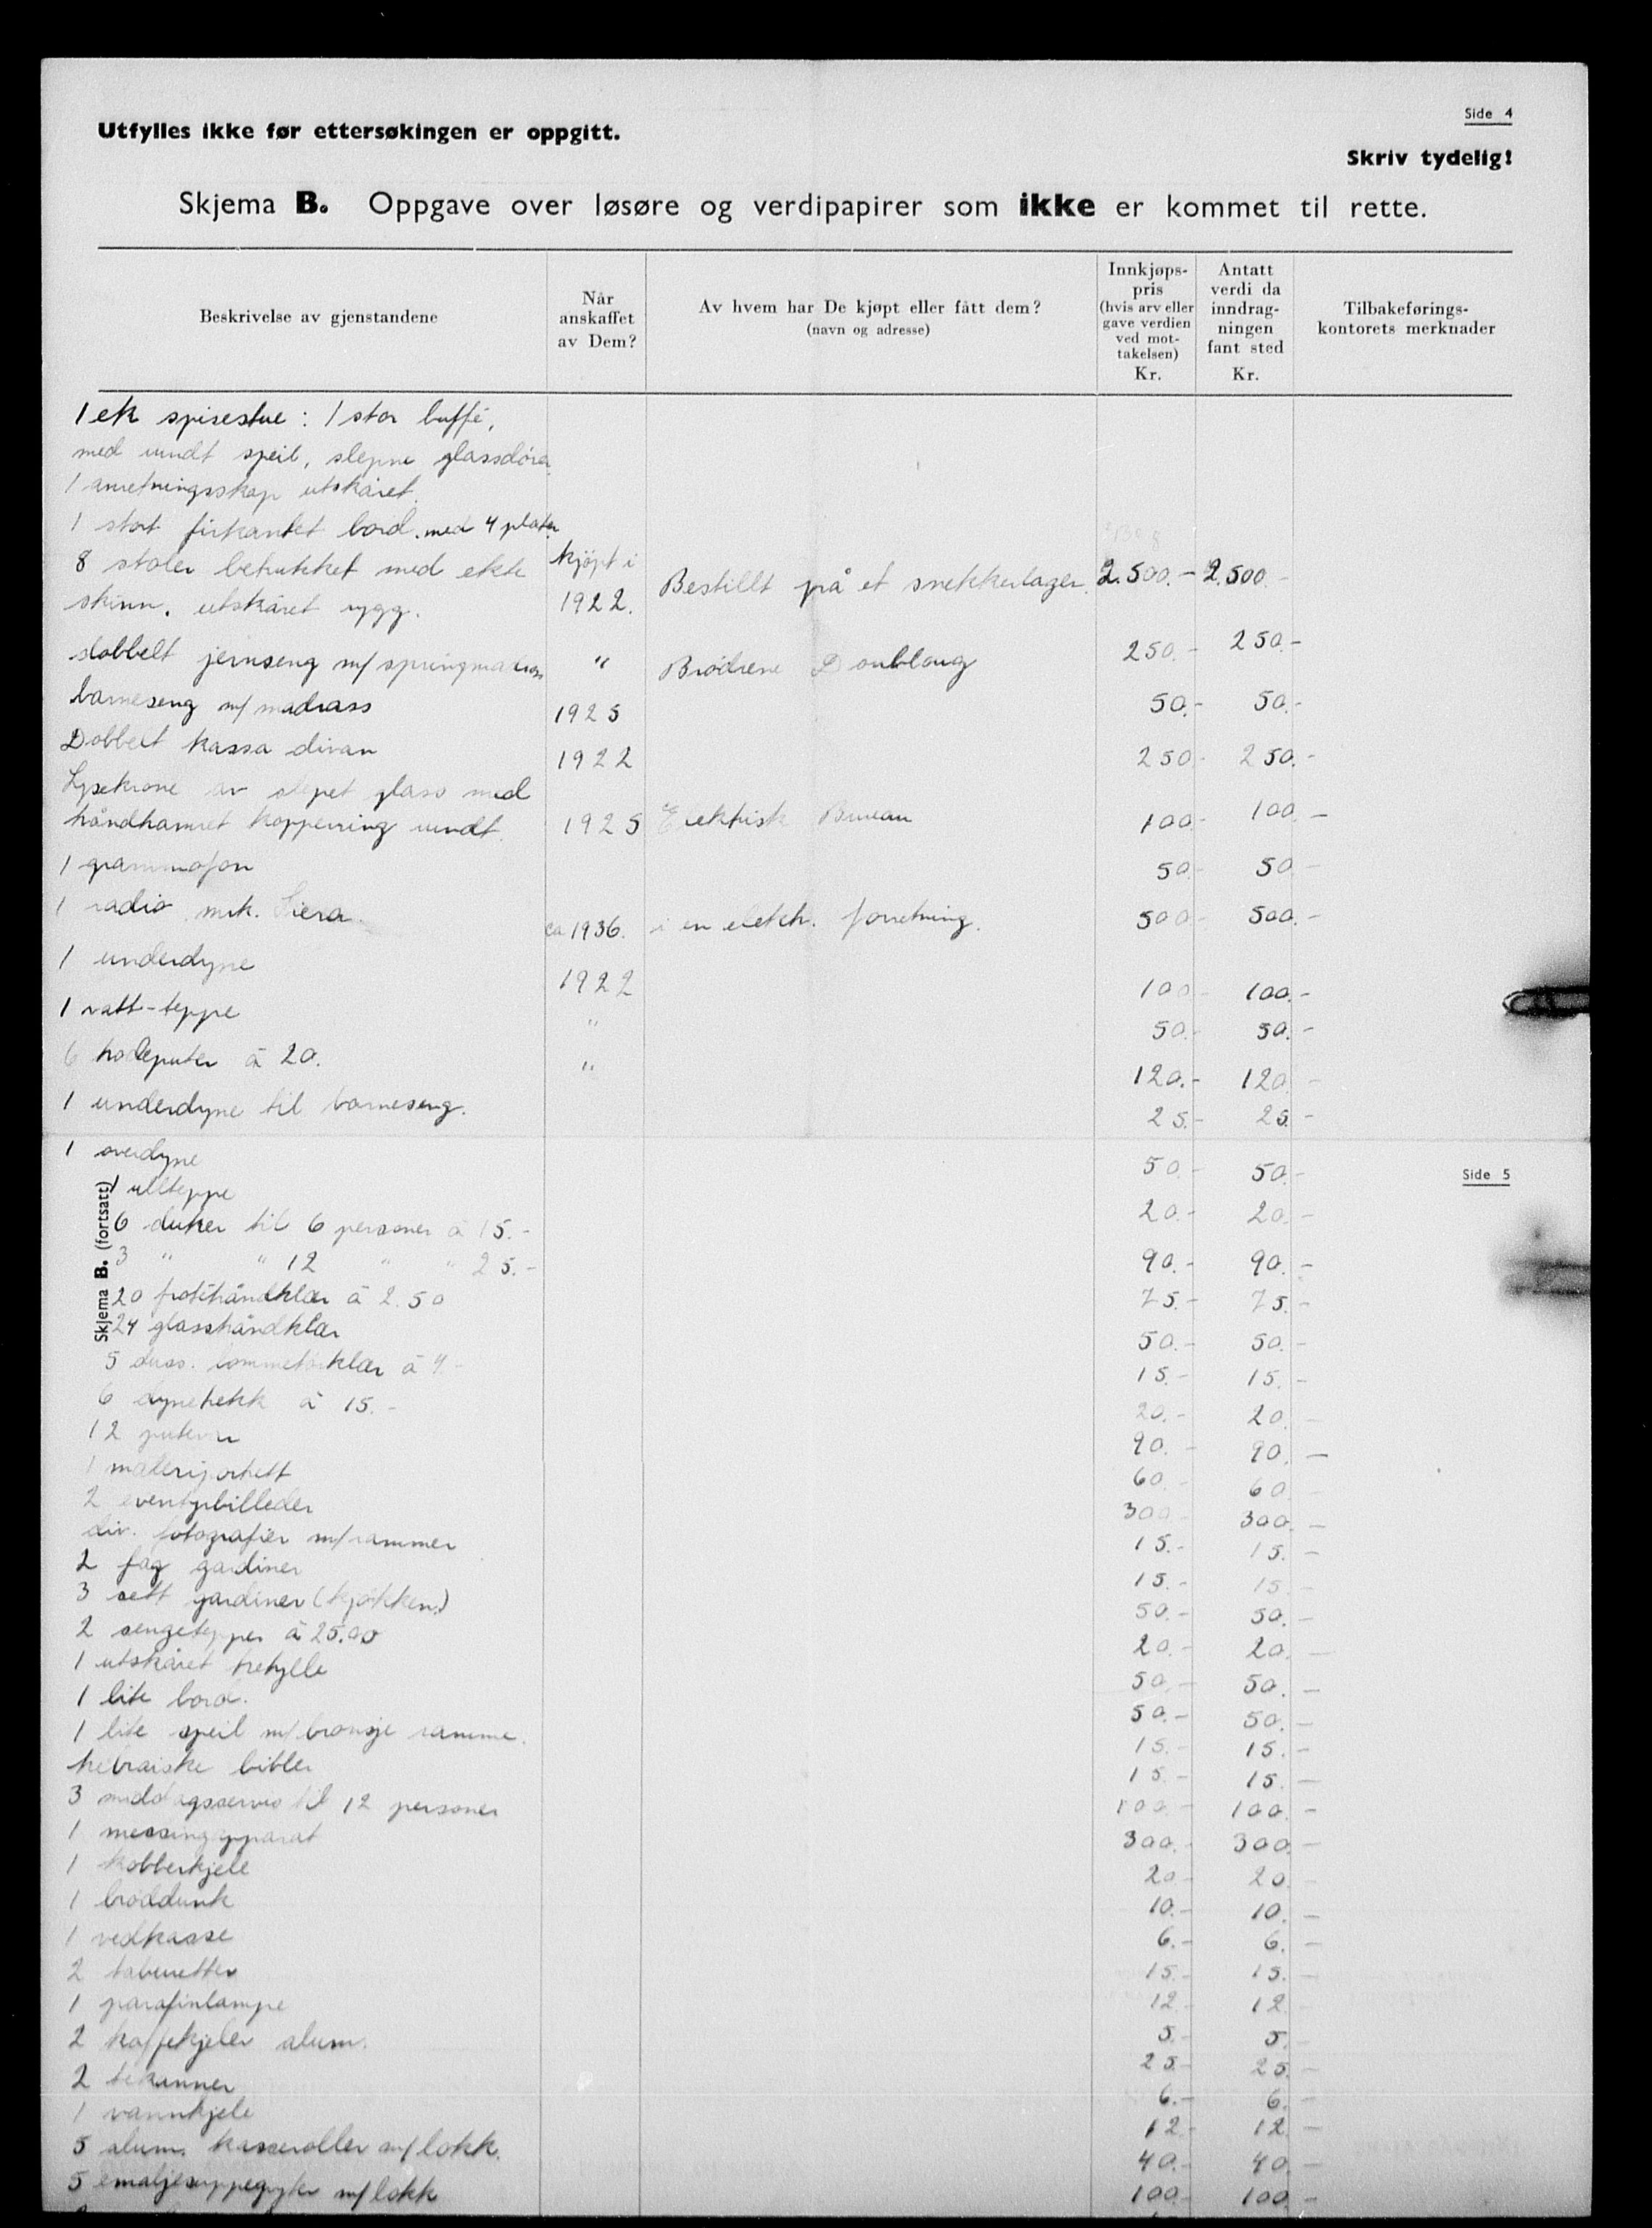 Side 4
Utfylles ikke før ettersøkingen er oppgitt.
Skriv tydelig!
Skjema B. Oppgave over løsøre og verdipapirer som ikke er kommet til rette.
Beskrivelse av gjenstandene
Når anskaffet av Dem?
Av hvem har De kjøpt eller fått dem? (navn og adresse)
Innkjøps-pris (hvis arv eller gave verdien ved mot-takelsen) Kr.
Antatt verdi da inndrag-ningen fant sted Kr.
Tilbakeførings-kontorets merknader
1 ek spisestue: 1 stor buffé,
med rundt speil, slepne glassdører
1 anretningsskap utskåret.
1 stort firkantet bord. med 4 plater
8 stoler betrukket med ekte kjöpt i
skinn. utskåret rygg. 1922. Bestillt på et snekkerlager. 2.500.- 2.500.-
dobbelt jernseng m/springmadrass " Brödrene Doubloug 250.- 250.-
barneseng m/madrass 1925 50.- 50.-
Dobbelt kassa divan 1922 250.- 250.-
Lysekrone av slepet glass med
håndhamret kopperring rundt. 1925 Elektrisk Bureau 100.- 100.-
1 grammofon 50.- 50.-
1 radio mrk. Siera. ca 1936. i en elektr. forretning. 500.- 500.-
1 underdyne 1922 100.- 100.-
1 vatt-teppe " 50.- 50.-
6 hodeputer á 20. " 120.- 120.-
1 underdyne til barneseng. 25.- 25.-
1 overdyne 50.- 50.-
Side 5
Skjema B. (fortsatt)
1 ullteppe 20.- 20.-
6 duker til 6 personer á 15.- 90.- 90.-
3 " " 12 " " 25.- 75.- 75.-
20 frotéhåndklær á 2.50 50.- 50.-
24 glasshåndklær 15.- 15.-
5 duss. lommetörklær á 4.- 20.- 20.-
6 dynetrekk á 15.- 90.- 90.-
12 putevar 60.- 60.-
1 maleriportrett 300.- 300.-
2 eventyrbilleder 15.- 15.-
div. fotografier m/rammer 15.- 15.-
2 fag gardiner 50.- 50.-
3 sett gardiner (kjökken) 20.- 20.-
2 sengetepper á 25.00 50.- 50.-
1 utskåret trehylle 50.- 50.-
1 lite bord. 15.- 15.-
1 lite speil m/bronsje ramme. 15.- 15.-
hebraiske bibler 100.- 100.-
3 middagsservis til 12 personer 300.- 300.-
1 messingapparat 20.- 20.-
1 kobberkjele 10.- 10.-
1 bröddunk 6.- 6.-
1 vedkasse 15.- 15.-
2 taburetter 12.- 12.-
1 parafinlampe 5.- 5.-
2 kaffekjeler alum. 25.- 25.-
2 tekanner 6.- 6.-
1 vannkjele 12.- 12.-
5 alum. kasseroller m/lokk. 40.- 40.-
5 emaljesuppegryter m/lokk 100.- 100.-